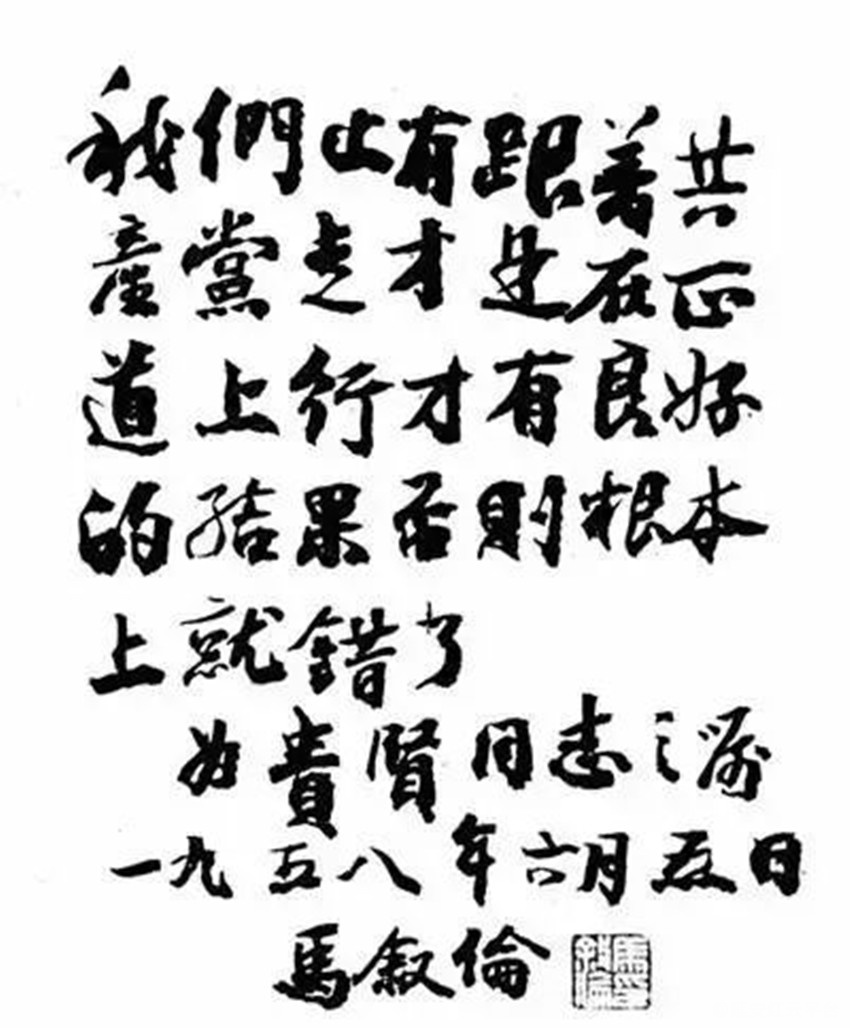 我們止有跟着共
產黨走才是在正
道上行才有良好
的結果否則根本
上就錯了
为貴賢同志之嘱
一九五八年六月五日
馬叙倫